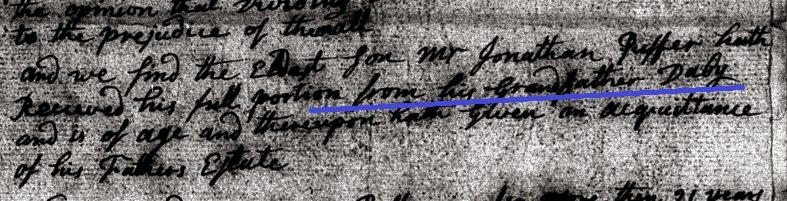 the opinion that Dividing
to the prejudice of them all
and we find the Eldest Son Mr Jonathan Piffer hath
Received his full portion from his Grandfather Daby
and is of age and thereupon hath given an acquittance
of his Fathers Estate
more then 21 years